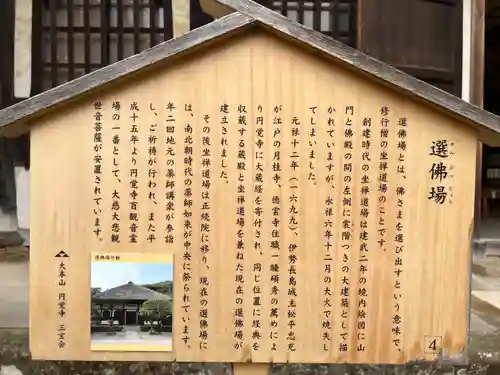 選佛場
せんぶつじょう
選佛場とは、佛さまを選び出すという意味で、
修行僧の坐禅道場のことです。
創建時代の坐禅道場は建武二年の境内絵図に山
門と佛殿の間の左側に雲階つきの大建築として描
かれていますが、永禄六年十二月の大火で焼失し
てしまいました。
元禄十二年（一六九九）、伊勢長島城主松平忠充
が江戸の月桂寺、徳雲寺住職一睡碩秀の薦めによ
り円覚寺に大蔵経を寄付され、同じ位置に経典を
収蔵する蔵殿と坐禅道場を兼ねた現在の選佛場が
建立されました。
その後坐禅道場は正続院に移り、現在の選佛場に
は、南北朝時代の薬師如来が中央に祭られていて
年二回地元の薬師講衆が参詣
し、ご祈祷が行われ、また平
成十五年より円覚寺百観音霊
場の一番として、大慈大悲観
世音菩薩が安置されています。
大本山 円覚寺 三宝会
選佛場外観
4